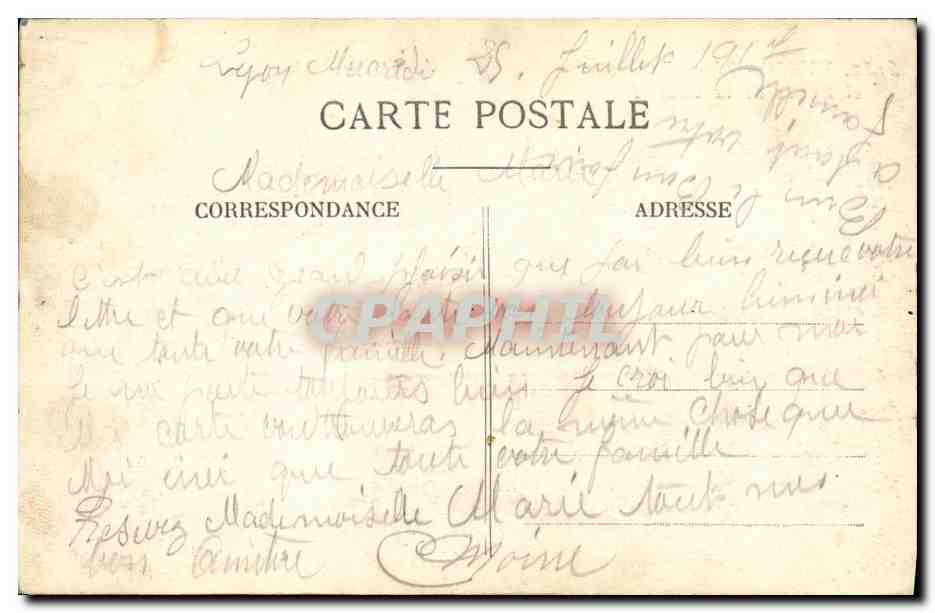 Lyon Mercredi 25. Juillet 191
CARTE POSTALE
Mademoiselle Marie
CORRESPONDANCE
ADRESSE
C'est grand plaisir que j'ai bien reçue votre
lettre et que votre toujour
que toute votre famille. Maintenant pour moi
Je me porte toujours bien Je croi bien que
carte vous trouveras la même chose que
Moi que toute votre famille
Resevez Mademoiselle Marie tout mes
Amitie Moine
Bien le Bonjour
a votre
Famille
CPAPHIL